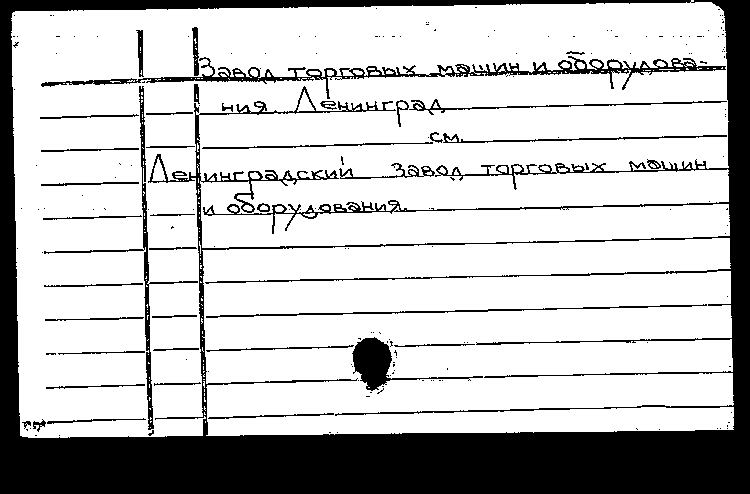 Завод торговых машин и оборудова-
ния. Ленинград
см.
Ленинградский завод торговых машин
и оборудования.